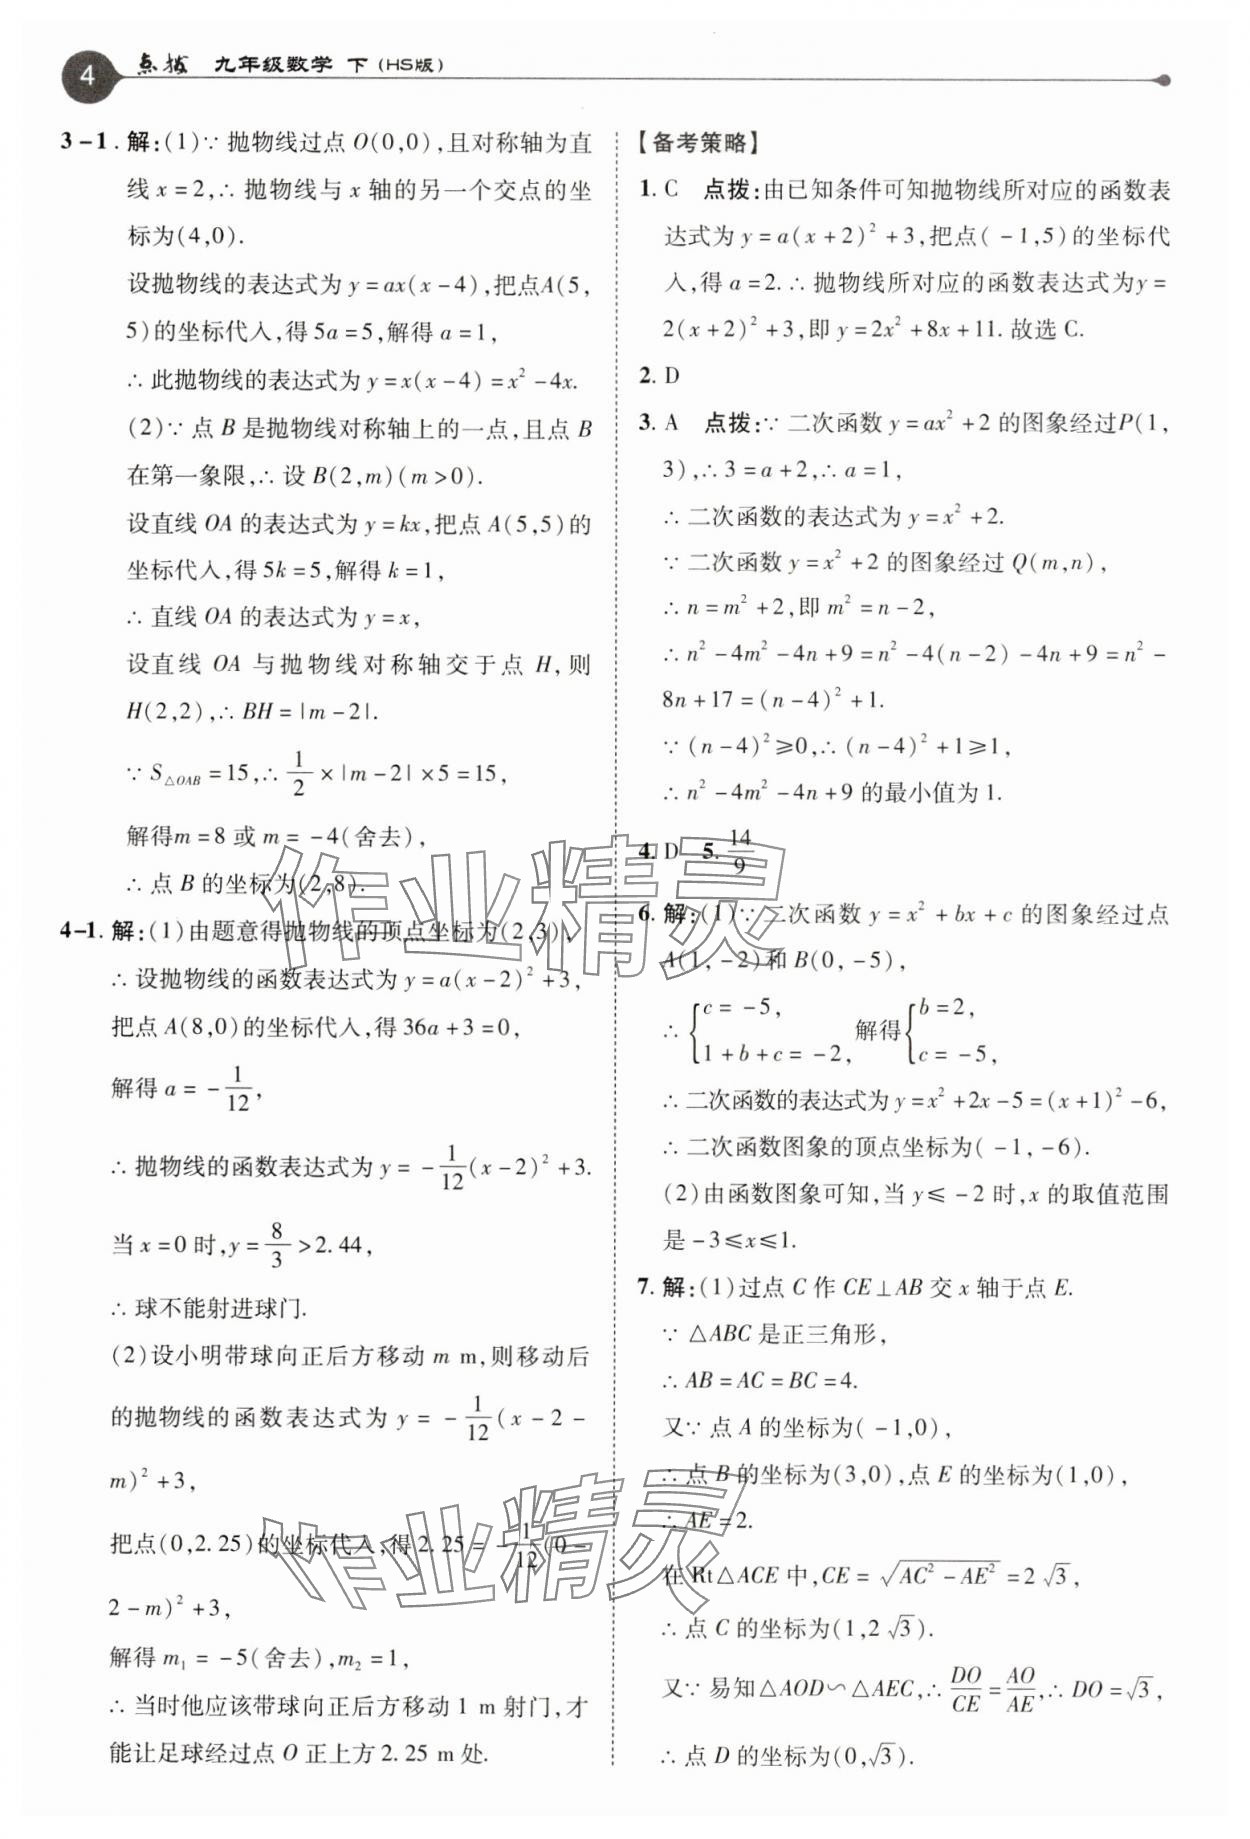 4 点拨 九年级数学 下(HS版)
3-1. 解:(1)∵ 抛物线过点 O(0,0),且对称轴为直
线 x=2,∴ 抛物线与 x 轴的另一个交点的坐
标为(4,0).
设抛物线的表达式为 y=ax(x-4),把点A(5,
5)的坐标代入,得 5a=5,解得 a=1,
∴ 此抛物线的表达式为 y=x(x-4)=x²-4x.
(2)∵ 点 B 是抛物线对称轴上的一点,且点 B
在第一象限,∴ 设 B(2,m)(m>0).
设直线 OA 的表达式为 y=kx,把点 A(5,5)的
坐标代入,得 5k=5,解得 k=1,
∴ 直线 OA 的表达式为 y=x,
设直线 OA 与抛物线对称轴交于点 H,则
H(2,2),∴ BH=|m-2|.
∵ S△OAB=15,∴ 1/2×|m-2|×5=15,
解得m=8 或 m=-4(舍去),
∴ 点 B 的坐标为(2,8).
4-1. 解:(1)由题意得抛物线的顶点坐标为(2,3),
∴ 设抛物线的函数表达式为 y=a(x-2)²+3,
把点 A(8,0)的坐标代入,得 36a+3=0,
解得 a=-1/12,
∴ 抛物线的函数表达式为 y=-1/12(x-2)²+3.
当 x=0 时,y=8/3>2.44,
∴ 球不能射进球门.
(2)设小明带球向正后方移动 m m,则移动后
的抛物线的函数表达式为 y=-1/12(x-2-
m)²+3,
把点(0,2.25)的坐标代入,得 2.25=-1/12(0-
2-m)²+3,
解得 m₁=-5(舍去),m₂=1,
∴ 当时他应该带球向正后方移动 1 m 射门,才
能让足球经过点 O 正上方 2.25 m 处.
【备考策略】
1. C 点拨:由已知条件可知抛物线所对应的函数表
达式为 y=a(x+2)²+3,把点(-1,5)的坐标代
入,得 a=2.∴ 抛物线所对应的函数表达式为y=
2(x+2)²+3,即 y=2x²+8x+11.故选 C.
2. D
3. A 点拨:∵ 二次函数 y=ax²+2 的图象经过P(1,
3),∴ 3=a+2,∴ a=1,
∴ 二次函数的表达式为 y=x²+2.
∵ 二次函数 y=x²+2 的图象经过 Q(m,n),
∴ n=m²+2,即 m²=n-2,
∴ n²-4m²-4n+9=n²-4(n-2)-4n+9=n²-
8n+17=(n-4)²+1.
∵ (n-4)²≥0,∴ (n-4)²+1≥1,
∴ n²-4m²-4n+9 的最小值为 1.
4. D 5. 14/9
6. 解:(1)∵ 二次函数 y=x²+bx+c 的图象经过点
A(1,-2)和 B(0,-5),
∴ {c=-5, 1+b+c=-2, 解得 {b=2, c=-5,
∴ 二次函数的表达式为 y=x²+2x-5=(x+1)²-6,
∴ 二次函数图象的顶点坐标为(-1,-6).
(2)由函数图象可知,当 y≤-2 时,x 的取值范围
是-3≤x≤1.
7. 解:(1)过点 C 作 CE⊥AB 交 x 轴于点 E.
∵ △ABC 是正三角形,
∴ AB=AC=BC=4.
又∵ 点 A 的坐标为(-1,0),
∴ 点 B 的坐标为(3,0),点 E 的坐标为(1,0),
∴ AE=2.
在 Rt△ACE 中,CE=√(AC²-AE²)=2√3,
∴ 点 C 的坐标为(1,2√3).
又∵ 易知△AOD∽△AEC,∴ DO/CE=AO/AE,∴ DO=√3,
∴ 点 D 的坐标为(0,√3).
作业精灵
作业精灵